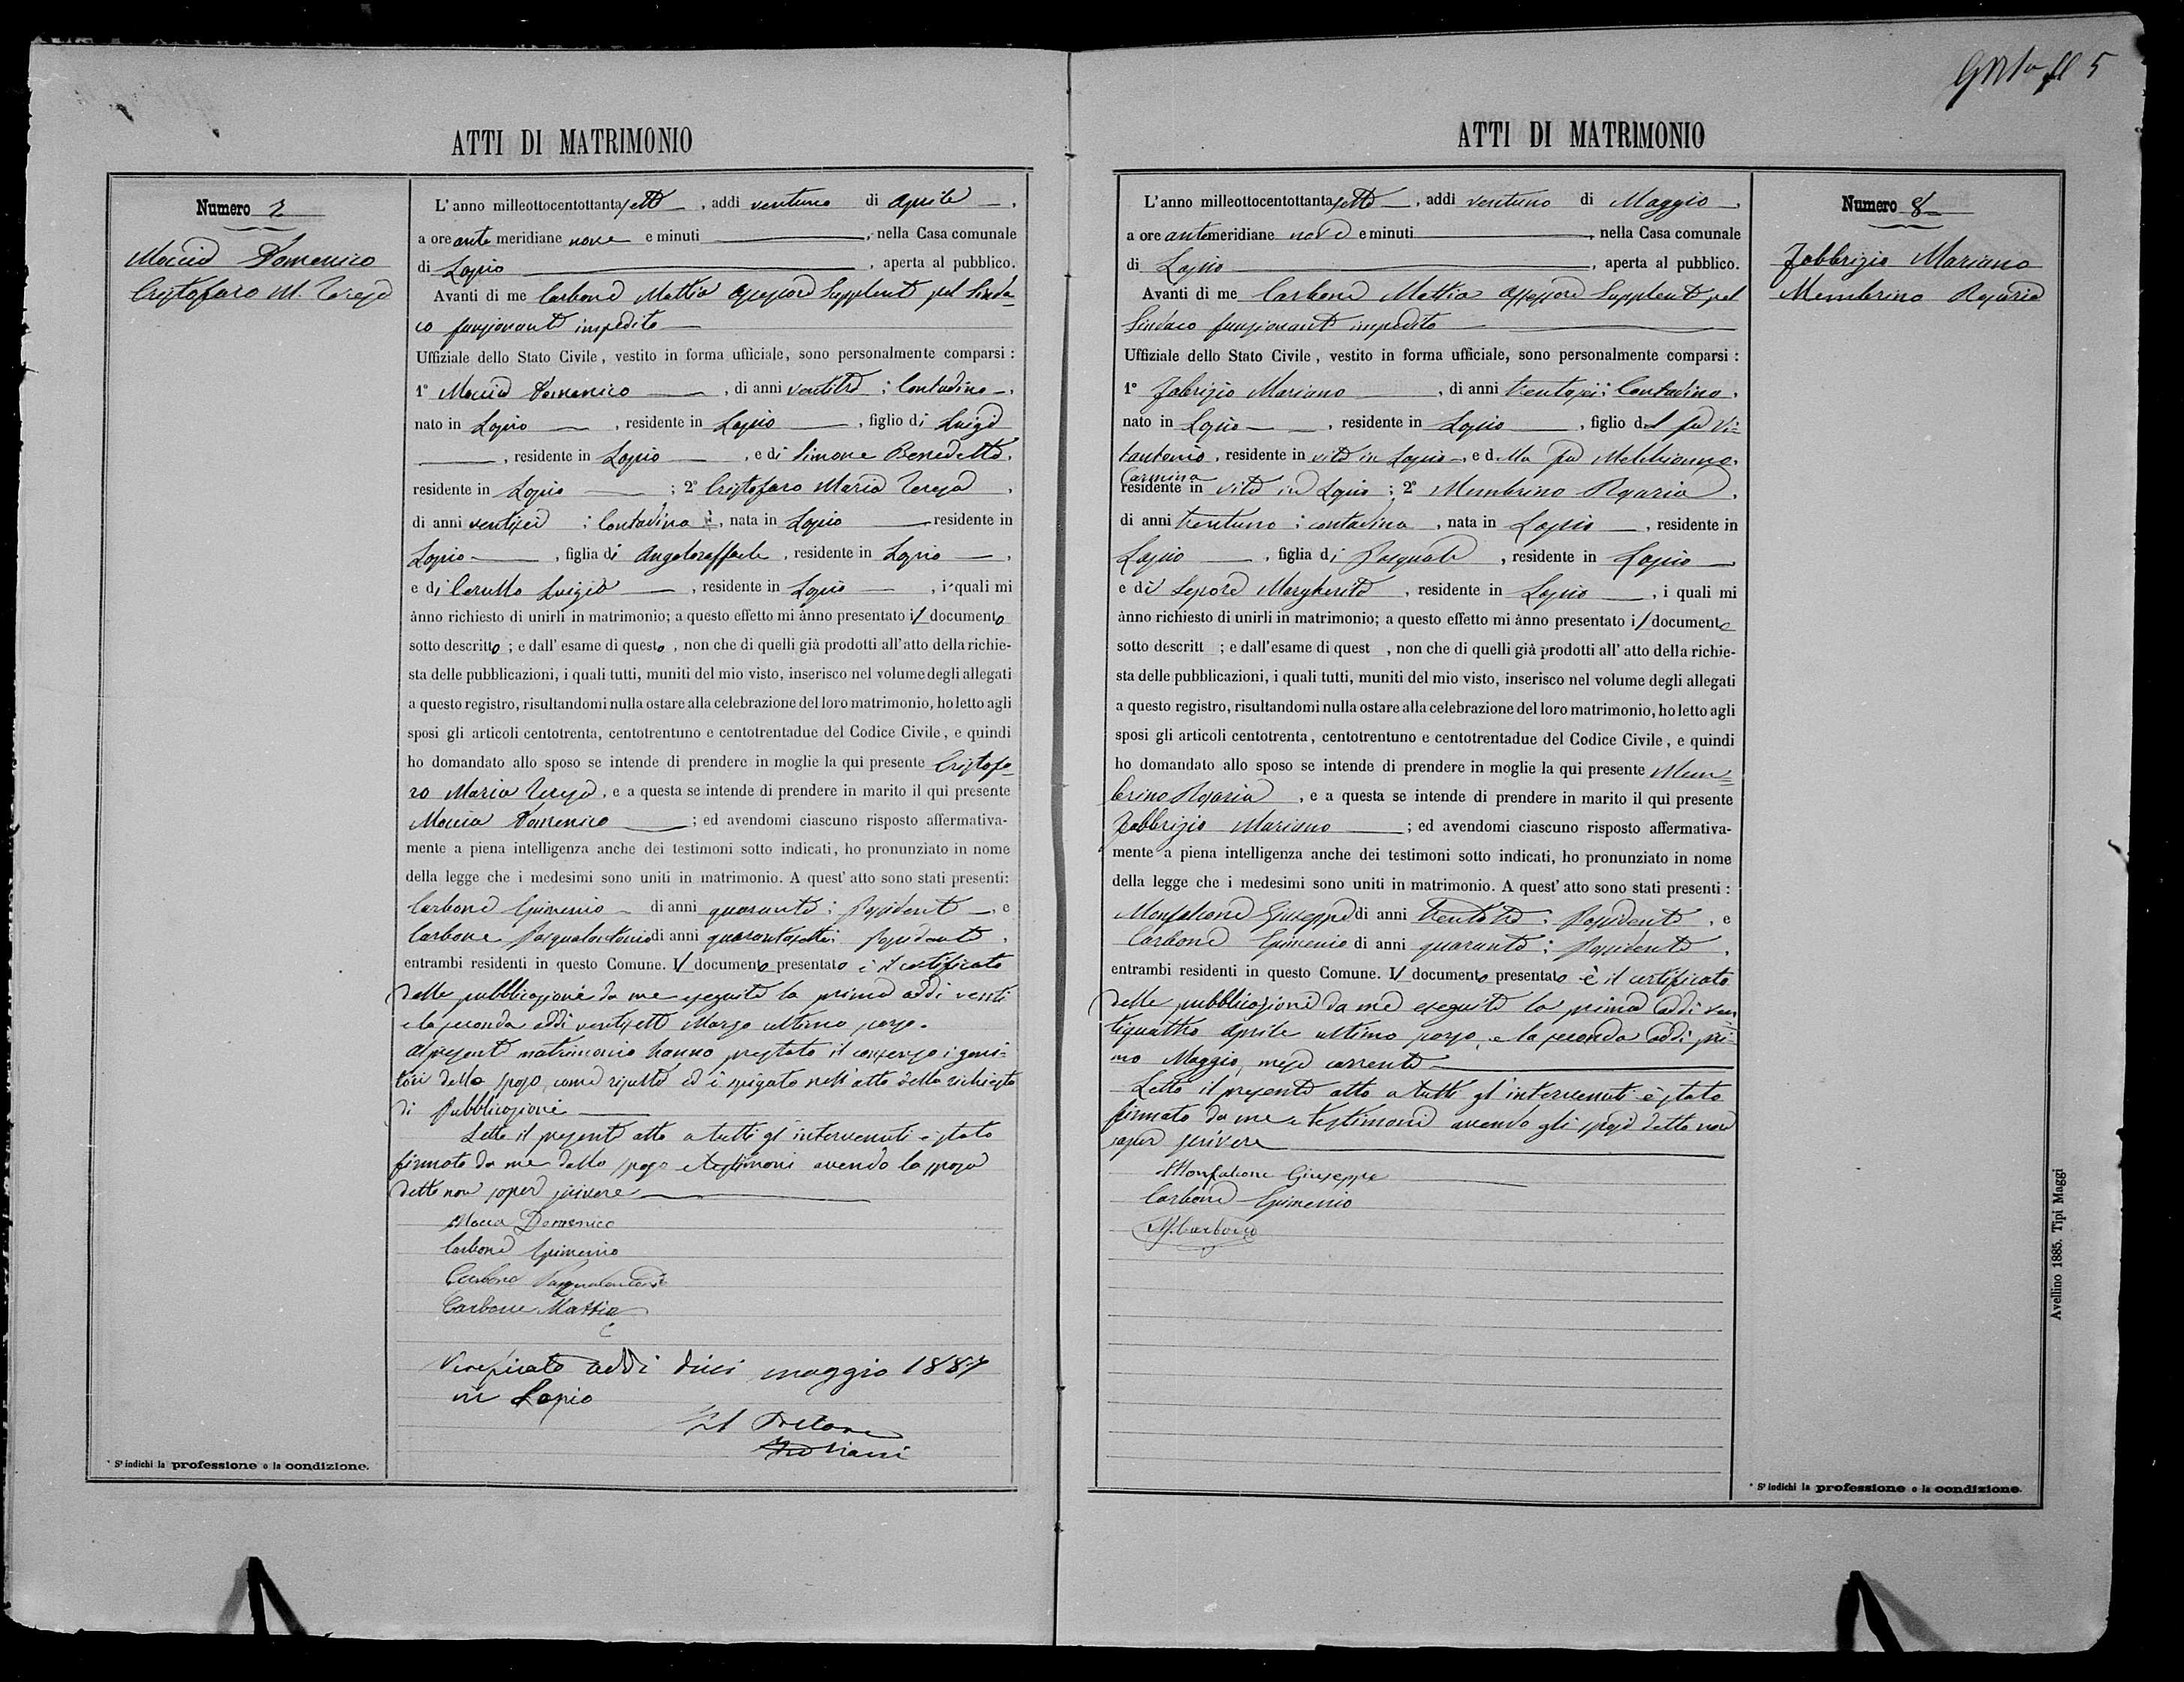 ATTI DI MATRIMONIO
Numero
Macciò Domenico
Cristofaro M. Teresa
L'anno milleottocentottantasette, addi ventuno di Aprile,
a ore ante meridiane nove e minuti , nella Casa comunale
di Lapio , aperta al pubblico.
Avanti di me Carbone Mattia Assessore Supplente pel Sinda
co funzionante impedito
Uffiziale dello Stato Civile, vestito in forma ufficiale, sono personalmente comparsi:
1° Maccia Domenico , di anni ventitre ; Contadino,
nato in Lapio , residente in Lapio , figlio di Luigi
, residente in Lapio , e di Simone Benedetta,
residente in Lapio ; 2° Cristofaro Maria Teresa ,
di anni ventisei ; Contadina , nata in Lapio residente in
Lapio , figlia di Angeloraffaele , residente in Lapio ,
e di Carullo Luigia , residente in Lapio , i quali mi
ànno richiesto di unirli in matrimonio; a questo effetto mi ànno presentato il documento
sotto descritto ; e dall' esame di questo , non che di quelli già prodotti all' atto della richie-
sta delle pubblicazioni, i quali tutti, muniti del mio visto, inserisco nel volume degli allegati
a questo registro, risultandomi nulla ostare alla celebrazione del loro matrimonio, ho letto agli
sposi gli articoli centotrenta, centotrentuno e centotrentadue del Codice Civile, e quindi
ho domandato allo sposo se intende di prendere in moglie la qui presente Cristofa-
ro Maria Teresa , e a questa se intende di prendere in marito il qui presente
Maccia Domenico ; ed avendomi ciascuno risposto affermativa-
mente a piena intelligenza anche dei testimoni sotto indicati, ho pronunziato in nome
della legge che i medesimi sono uniti in matrimonio. A quest' atto sono stati presenti:
Carbone Epimenio di anni quaranta ; Possidente , e
Carbone Pasqualantonio di anni quarantasette; Possidente ,
entrambi residenti in questo Comune. Il documento presentato è il certificato
delle pubblicazioni da me eseguite la prima addi venti
e la seconda addi ventisette Marzo ultimo corso.
Al presente matrimonio hanno prestato il consenso i geni-
tori dello sposo, come risulta ed è spiegato nell'atto della richiesta
di Pubblicazione
Letto il presente atto a tutti gl'intervenuti è stato
firmato da me dallo sposo e testimoni avendo la sposa
detto non saper scrivere
Macca Domenico
Carbone Epimenio
Carbone Pasqualantonio
Carbone Mattia
Verificato addi dieci maggio 1887
in Lapio
Il Pretore
* Si indichi la professione o la condizione.
5
ATTI DI MATRIMONIO
Numero 8
Fabbrizio Mariano
Membrino Rosaria
L'anno milleottocentottantasette, addi ventuno di Maggio,
a ore antemeridiane nove e minuti , nella Casa comunale
di Lapio , aperta al pubblico.
Avanti di me Carbone Mattia Assessore Supplente pel
Sindaco funzionante impedito
Uffiziale dello Stato Civile, vestito in forma ufficiale, sono personalmente comparsi:
1° Fabrizio Mariano , di anni trentasei; Contadino,
nato in Lapio , residente in Lapio , figlio del fu Vi-
tantonio, residente in vita in Lapio, e della fu Melchionno
Carmina
residente in vita in Lapio ; 2° Membrino Rosaria ,
di anni trentuno ; contadina , nata in Lapio , residente in
Lapio , figlia di Pasquale , residente in Lapio
e di Lepore Margherita , residente in Lapio , i quali mi
ànno richiesto di unirli in matrimonio; a questo effetto mi ànno presentato il documento
sotto descritt ; e dall' esame di quest , non che di quelli già prodotti all' atto della richie-
sta delle pubblicazioni, i quali tutti, muniti del mio visto, inserisco nel volume degli allegati
a questo registro, risultandomi nulla ostare alla celebrazione del loro matrimonio, ho letto agli
sposi gli articoli centotrenta, centotrentuno e centotrentadue del Codice Civile, e quindi
ho domandato allo sposo se intende di prendere in moglie la qui presente Mem=
brino Rosaria , e a questa se intende di prendere in marito il qui presente
Fabbrizio Mariano ; ed avendomi ciascuno risposto affermativa-
mente a piena intelligenza anche dei testimoni sotto indicati, ho pronunziato in nome
della legge che i medesimi sono uniti in matrimonio. A quest' atto sono stati presenti:
Monfalcone Giuseppe di anni trentatre ; Possidente , e
Carbone Epimenio di anni quaranta ; Possidente ,
entrambi residenti in questo Comune. Il documento presentato è il certificato
delle pubblicazioni da me eseguite la prima addi ven
tiquattro Aprile ultimo corso, e la seconda addi pri-
mo Maggio, mese corrente
Letto il presente atto a tutti gl'intervenuti è stato
firmato da me e testimoni avendo gli sposi detto non
saper scrivere
Monfalcone Giuseppe
Carbone Epimenio
M. Carbone
* Si indichi la professione o la condizione.
Avellino 1885. Tipi Maggi